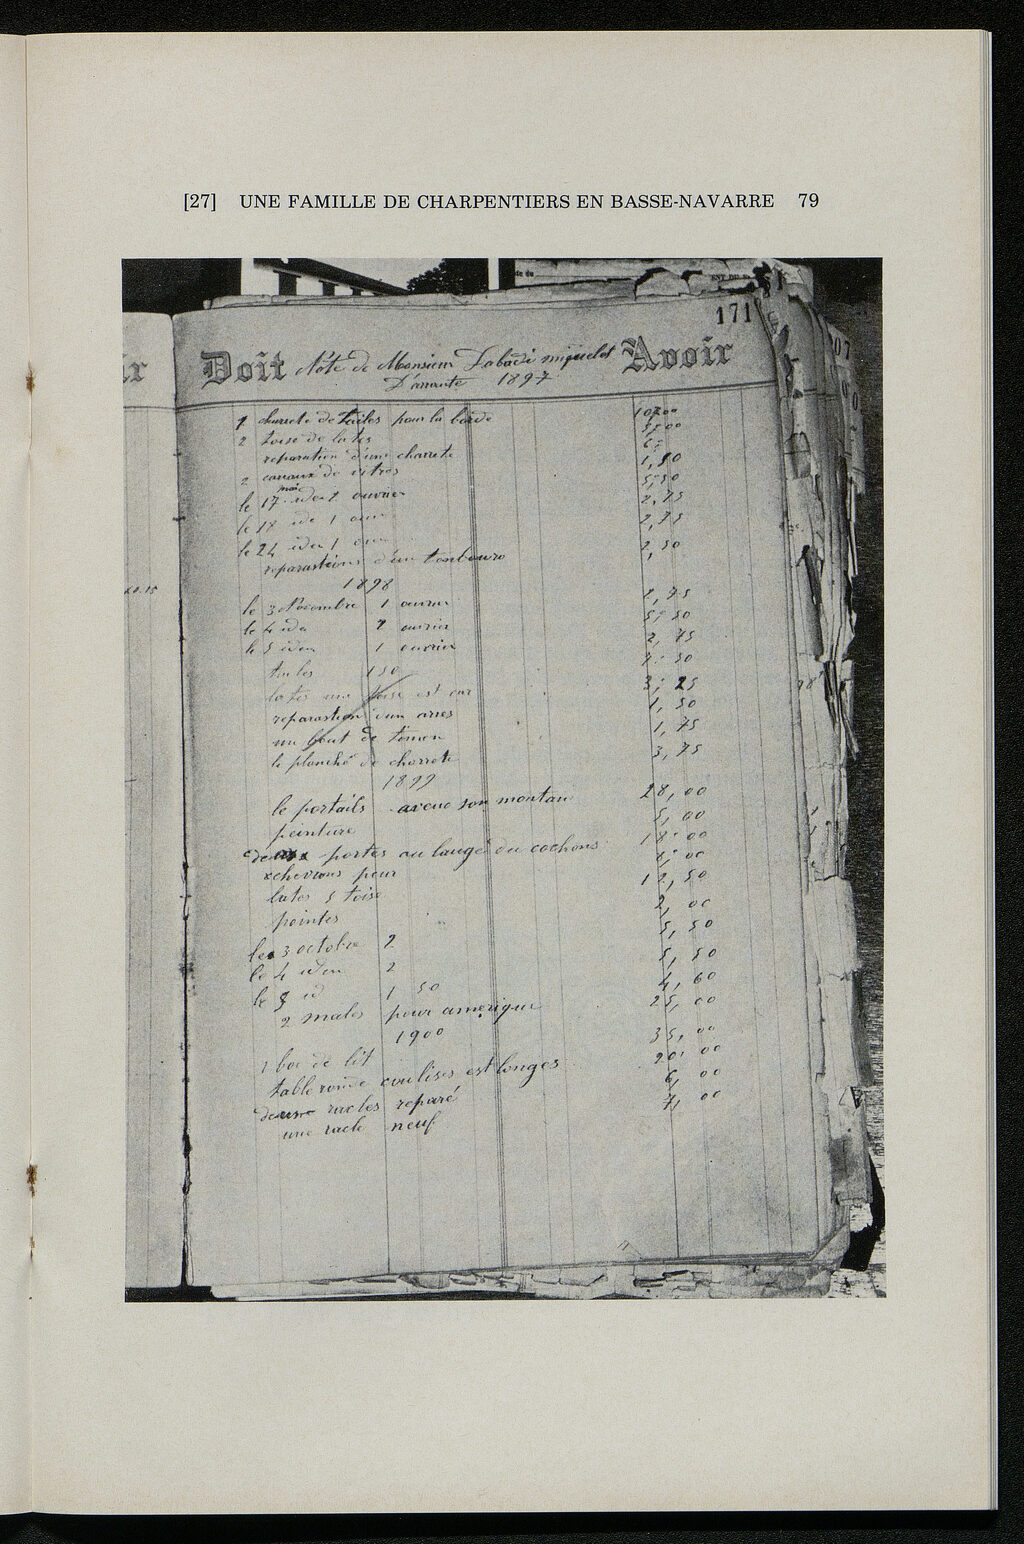 [27] UNE FAMILLE DE CHARPENTIERS EN BASSE-NAVARRE 79
171
Doit Note de Monsieur Labadi miquelot Avoir
D'arraute 1897
charrete de tuiles pour la borde
2 toise de lates 5,00
reparation d'une charrete
2 carraux de vitres 1,50
mai
le 17 iden 2 ouvrier 5,50
le 18 ide 1 ouv 2,75
le 24 iden 1 ouv 2,75
reparastions d'un tonbauro 2,50
1898
le 3 Novembre 1 ouvrier 2,75
le 4 iden 2 ouvrier 5,50
le 5 iden 1 ouvrier 2,75
tuiles 150
lates une toise est car 3,25
reparastion d'un arres 1,50
un bout de timon 1,75
le planché de charrete 3,75
1899
le portails avecue son montan 28,00
peinture 5,00
deux portes au laugé du cochons 18,00
chevrons pour
lates 5 toise 12,50
pointes 2,00
le 3 octobre 2 5,50
le 4 iden 2 5,50
le 5 id 1 50 4,60
2 males pour amerique 25,00
1900
1 boi de lit 35,00
table ronde coulises est longes 20,00
deux racles reparé 6,00
une racle neuf 7,00